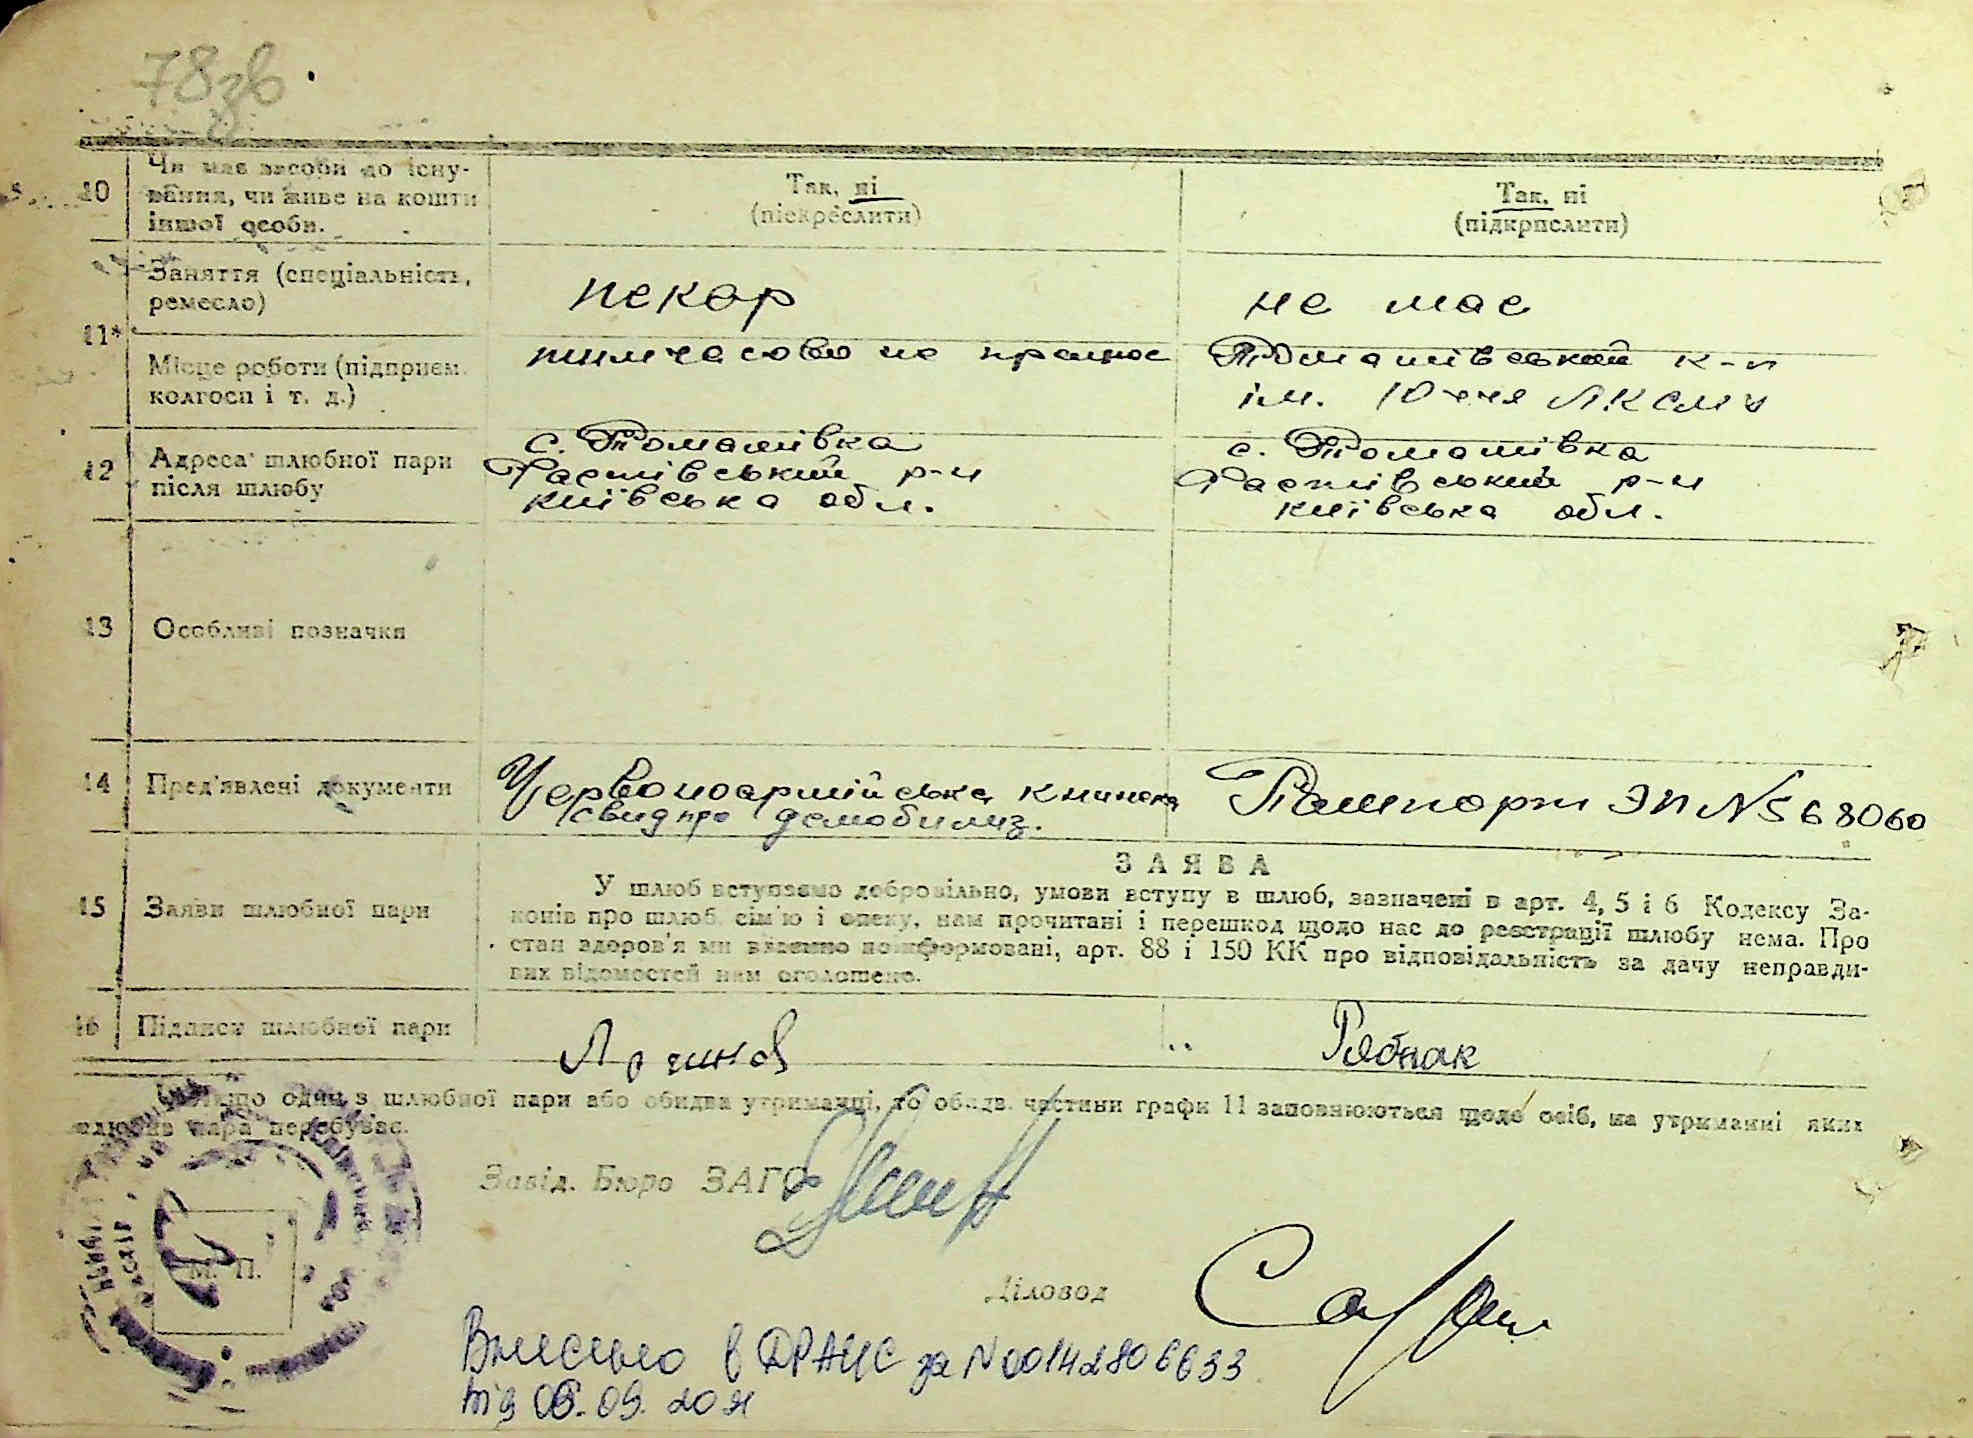 78зв
10
Чи має засоби до існу-
вання, чи живе на кошти
іншої особи.
Так, ні
(підкреслити)
Так, ні
(підкрпслити)
11*
Заняття (спеціальність,
ремесло)
пекар
не має
Місце роботи (підприєм.
колгосп і т. д.)
тимчасово не працює
Томашівський к-п
ім. 10-ччя ЛКСМУ
12
Адреса шлюбної пари
після шлюбу
с. Томашівка
Фастівський р-н
київська обл.
с. Томашівка
Фастівський р-н
київська обл.
13
Особливі позначки
14
Пред'явлені документи
Червоноармійська книжка
свид про демобилиз.
Пашпорт ЭП N 568060
15
Заяви шлюбної пари
ЗАЯВА
У шлюб вступаємо добровільно, умови вступу в шлюб, зазначені в арт. 4, 5 і 6 Кодексу За-
конів про шлюб, сім'ю і опеку, нам прочитані і перешкод щодо нас до реєстрації шлюбу нема. Про
стан здоров'я ми взаємно поінформовані, арт. 88 і 150 КК про відповідальність за дачу неправди-
вих відомостей нам оголошено.
16
Підписи шлюбної пари
Рябчак
Якщо один з шлюбної пари або обидва утриманці, то обидві частини графи 11 заповнюються щодо осіб, на утриманні яких
шлюбна пара перебуває.
Завід. Бюро ЗАГС
М. П.
Діловод
Внесено в ДРАЦС за N 00142806633
від 06.09.2021